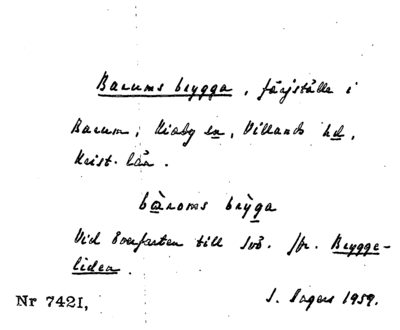 Barums brygga, färjställe i
Barum, Kiaby sn, Villands hd,
Krist. län.
bàroms brỳga
Vid överfarten till Ivö. Jfr. Brygge-
liden.
Nr 7421, I. Ingers 1959.